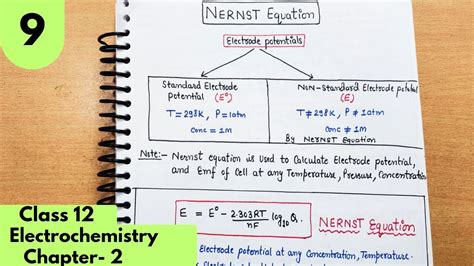 9
NERNST Equation
Electrode potentials
Standard Electrode
potential (E°)
T = 298K, P = 1atm
conc = 1M
NON-Standard Electrode potential
(E)
T ≠ 298K, P ≠ 1atm
conc ≠ 1M
By NERNST Equation
Note:- Nernst equation is used to Calculate Electrode potential,
and Emf of Cell at any Temperature, Pressure, Concentration
E = E° - 2.303RT/nF log10 Q.
NERNST Equation
Electrode potential at any Concentration, Temperature.
Class 12
Electrochemistry
Chapter- 2